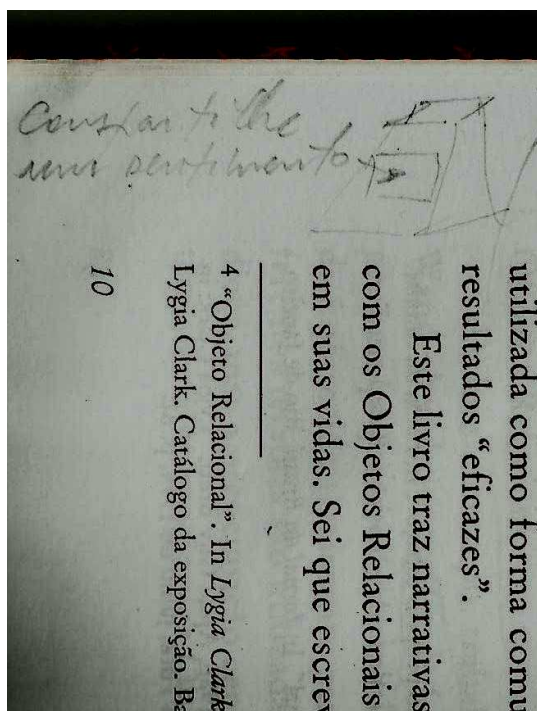 utilizada como forma comu
resultados “eficazes”.
Este livro traz narrativas
com os Objetos Relacionais
em suas vidas. Sei que escrev
4 “Objeto Relacional”. In Lygia Clark
Lygia Clark. Catálogo da exposição. Ba
10
Compartilhe
sentimento